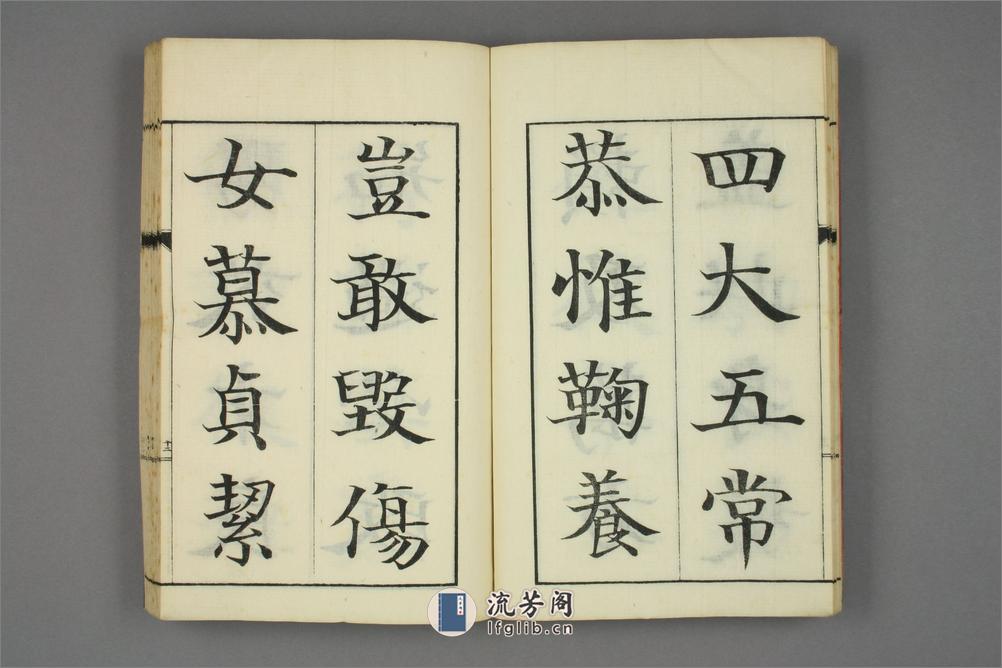 四大五常
恭惟鞠養
豈敢毀傷
女慕貞絜
十二
流芳阁
lfglib.cn